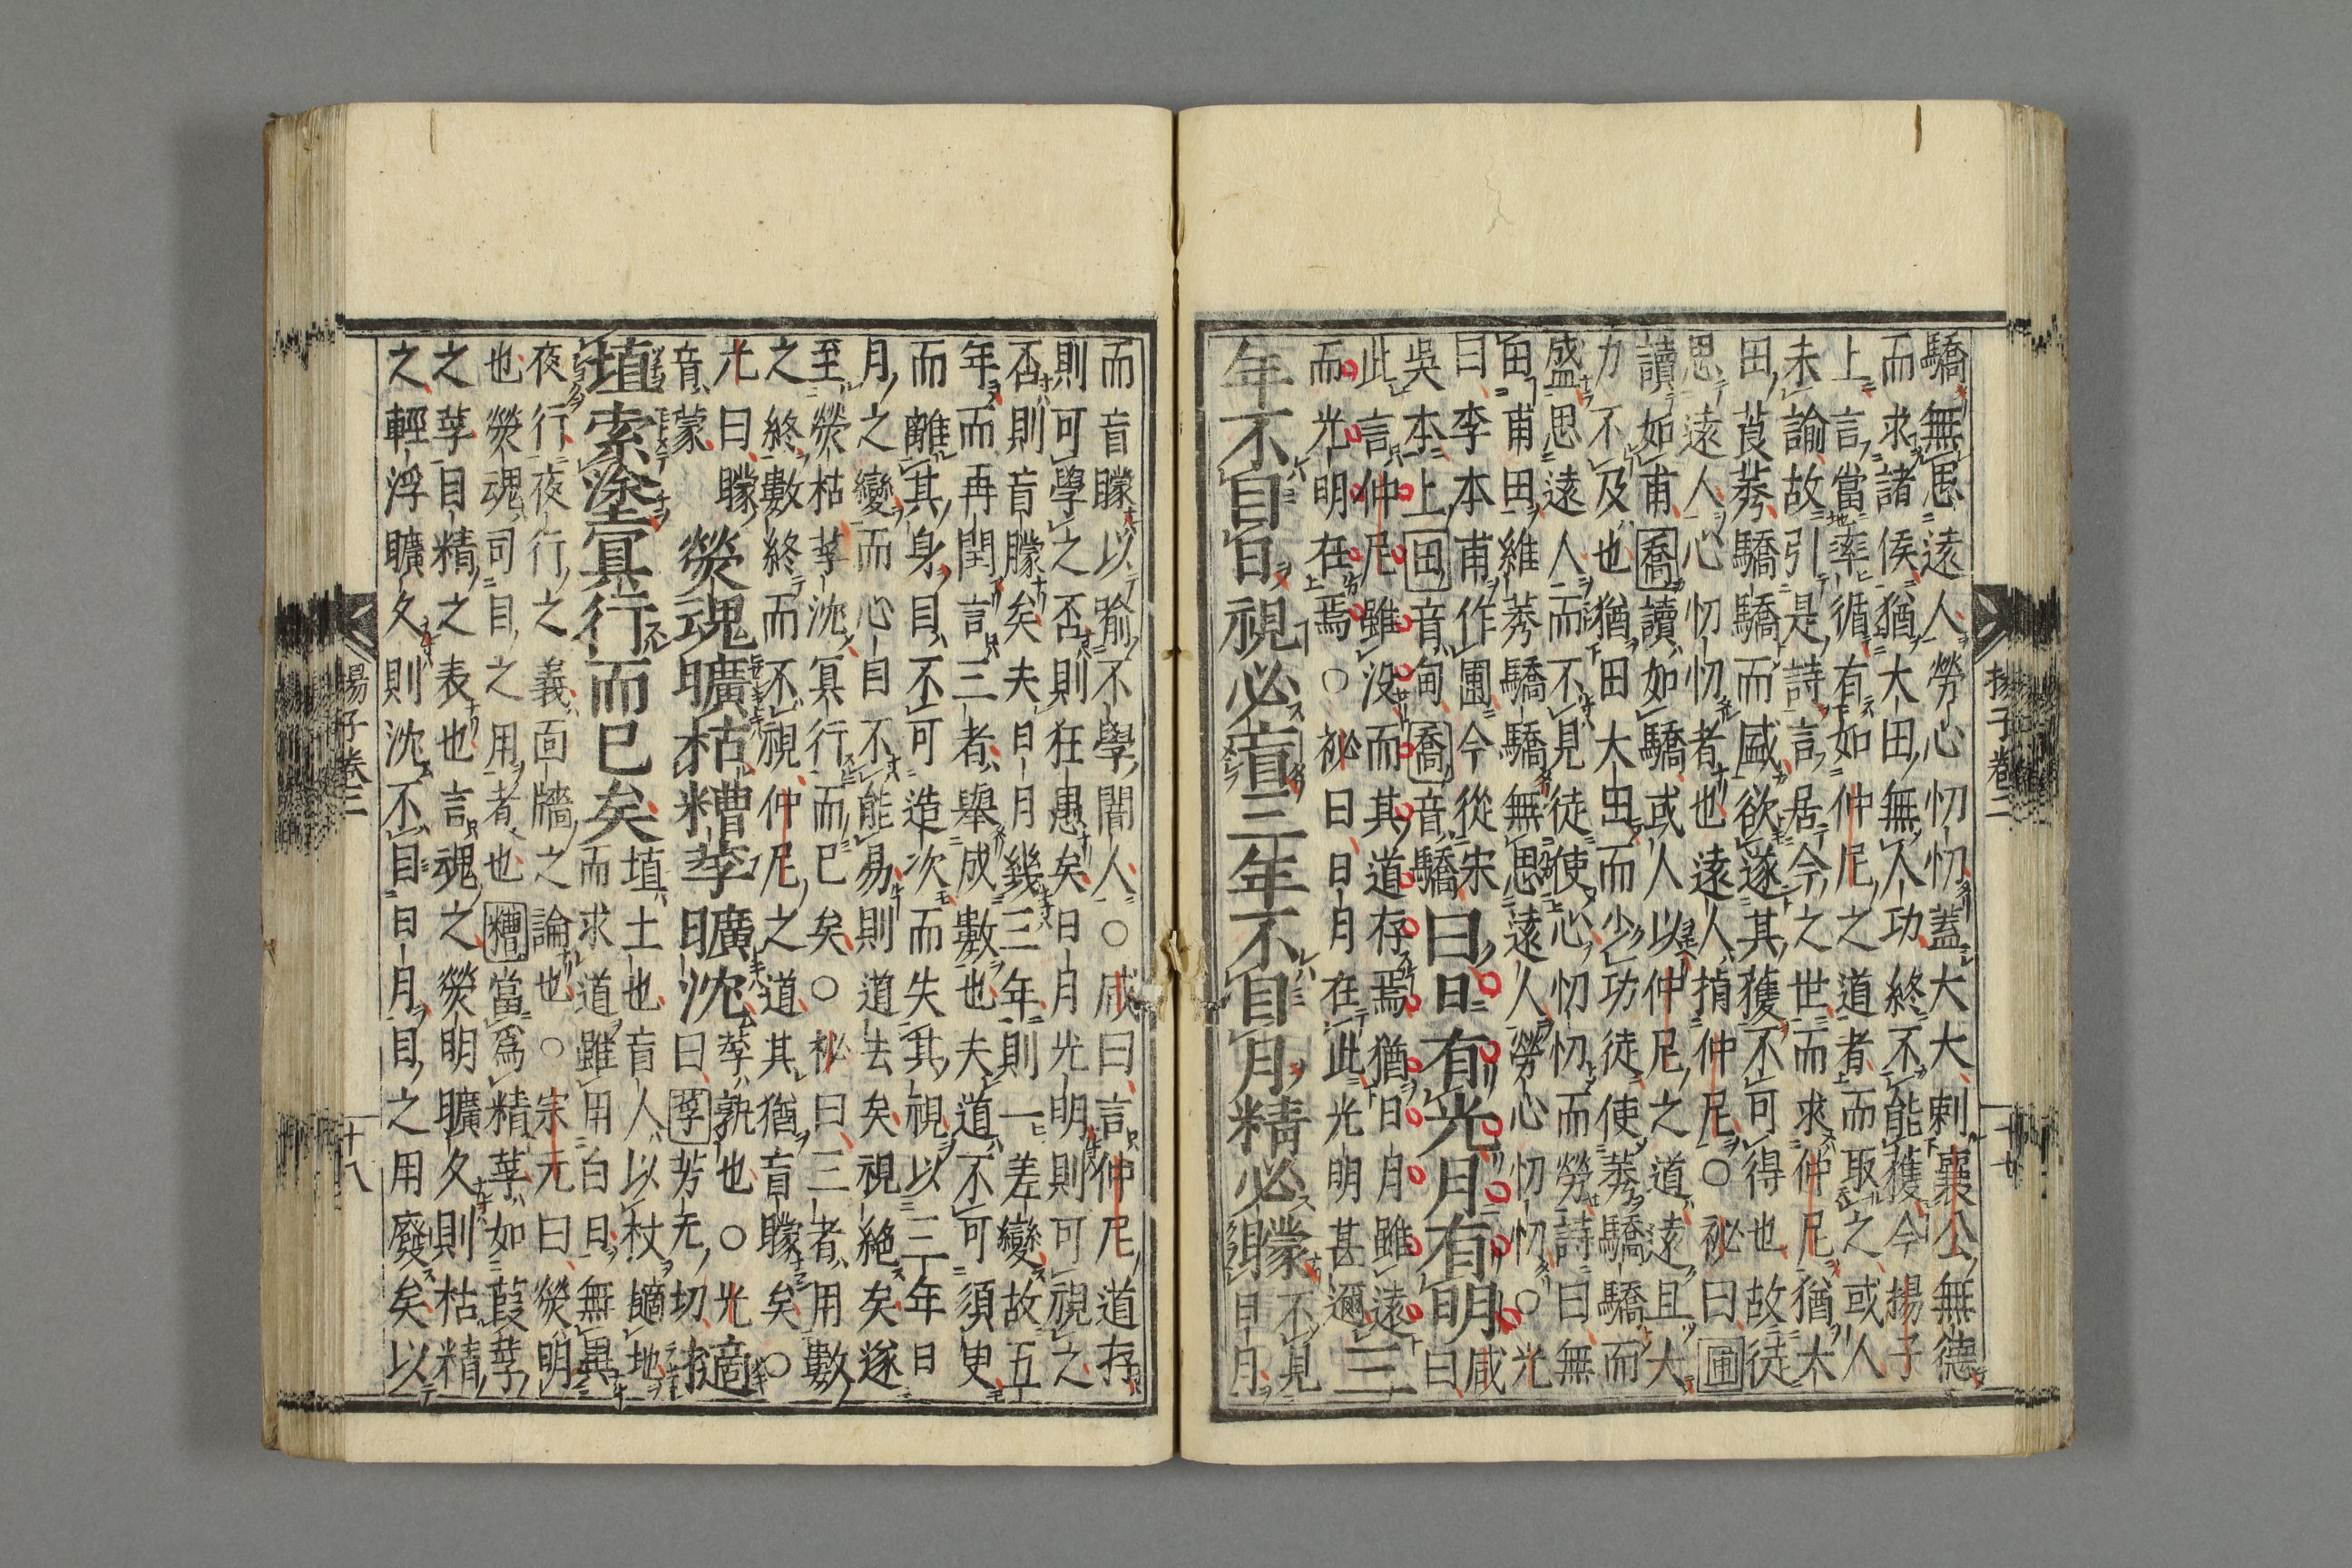 驕無思遠人勞心忉忉蓋大夫刺襄公無德
而求諸侯猶大田無人功終不能獲今揚子
上言當率循有如仲尼之道者而取之或人
未諭故引是詩言居今之世而求仲尼猶太
田莨莠驕驕而盛欲遂其獲不可得也故徒
思遠人心忉忉者也遠人損仲尼○祕曰圃
讀如甫喬讀如驕或人以仲尼之道遠且大
力不及也猶田大田而少功徒使莠驕驕而
盛思遠人而不見徒使心忉忉而勞詩曰無
田甫田維莠驕驕無思遠人勞心忉忉○光
曰李本甫作圃今從宋
吳本上田音甸喬音驕
曰日有光月有明
咸曰
此言仲尼雖沒而其道存焉猶日月雖遠
而光明在焉○祕曰日月在此光明甚邇
三
年不目日視必盲三年不目月精必矇
不見
日月
揚子卷二
十七
而盲矇以喻不學闇人○咸曰言仲尼道存
則可學之否則狂愚矣日月光明則可視之
否則盲矇矣夫日月幾三年則一差變故五
年而再閏言三者舉成數也夫道不可須臾
而離其身目不可造次而失其視以三年日
月之變而心自不能易則道去矣視絕矣遂
至熒枯莩沈冥行而已矣○祕曰三者用數
之終數終而不視仲尼之道其猶盲矇矣○
光曰矇
音蒙
熒魂曠枯糟莩曠沈
莩孰也○光
曰莩芳无切
擿
埴索塗冥行而已矣
埴土也盲人以杖擿地
而求道雖用白日無異
夜行夜行之義面牆之論也○宋元曰熒明
也熒魂司目之用者也糟當爲精莩如葭莩
之莩目精之表也言魂之熒明曠久則枯精
之輕浮曠久則沈不目日月目之用廢矣以
揚子卷二
十八